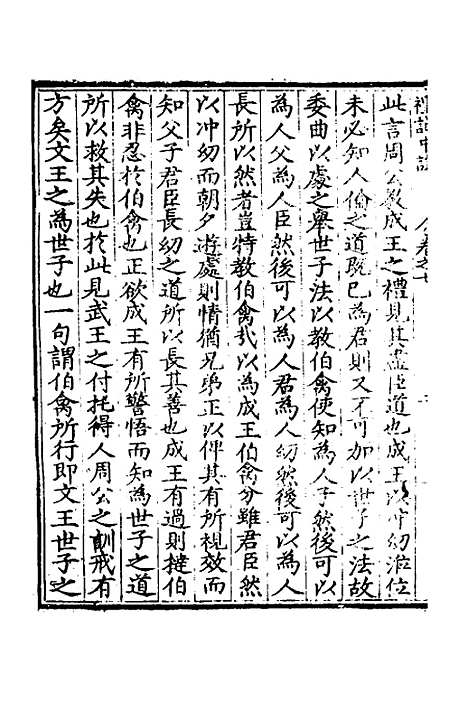 禮記中說 卷之七
此言周公教成王之禮見其盡臣道也成王以冲幼涖位
未必知人倫之道既已為君則又不可加以世子之法故
委曲以處之舉世子法以教伯禽使知為人子然後可以
為人父為人臣然後可以為人君為人幼然後可以為人
長所以然者豈特教伯禽哉以為成王伯禽分雖君臣然
以冲幼而朝夕遊處則情猶兄弟正以俾其有所視效而
知父子君臣長幼之道所以長其善也成王有過則撻伯
禽非忍於伯禽也正欲成王有所警悟而知為世子之道
所以救其失也於此見武王之付托得人周公之訓戒有
方矣文王之為世子也一句謂伯禽所行即文王世子之